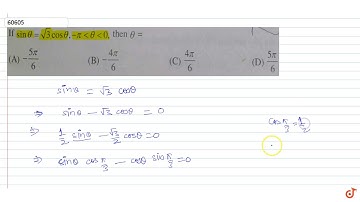 60605
If sinθ = √3 cosθ, −π < θ < 0, then θ =
(A) −5π/6 (B) −4π/6 (C) 4π/6 (D) 5π/6
sinθ = √3 cosθ
⇒ sinθ − √3 cosθ = 0
⇒ 1/2 sinθ − √3/2 cosθ = 0
cos π/3 = 1/2
⇒ sinθ cos π/3 − cosθ sin π/3 = 0